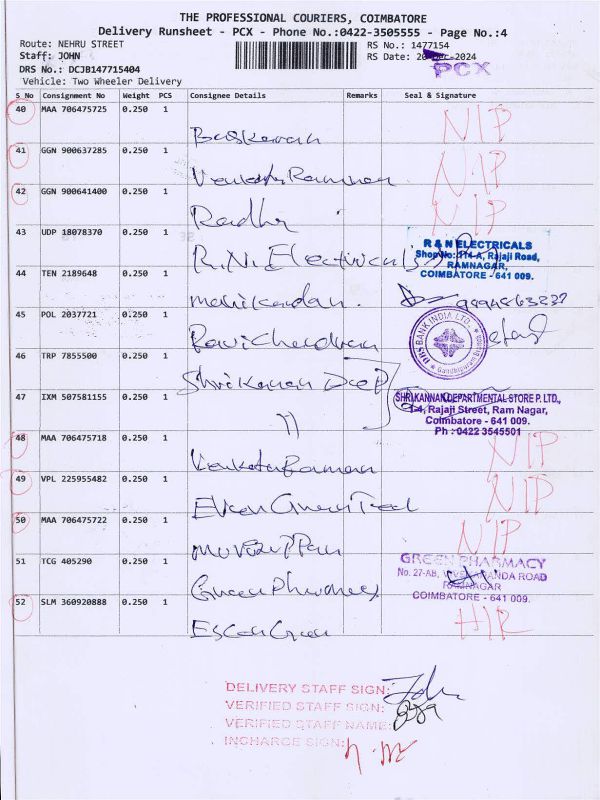 THE PROFESSIONAL COURIERS, COIMBATORE
Delivery Runsheet - PCX - Phone No.:0422-3505555 - Page No.:4
Route: NEHRU STREET RS No.: 1477154
Staff: JOHN RS Date: 20-Dec-2024
DRS No.: DCJB147715404 PCX
Vehicle: Two Wheeler Delivery
S_No Consignment No Weight PCS Consignee Details Remarks Seal & Signature
40 MAA 706475725 0.250 1 Baskaran NIP
41 GGN 900637285 0.250 1 Venkata Raman NIP
42 GGN 900641400 0.250 1 Radha NIP
43 UDP 18078370 0.250 1 R.N. Electricals
R & N ELECTRICALS
Shop No: 114-A, Rajaji Road,
RAMNAGAR,
COIMBATORE - 641 009.
44 TEN 2189648 0.250 1 Manikandan.
45 POL 2037721 0.250 1 Ravichandran
DBS BANK INDIA LTD.
Gandhipuram Branch
46 TRP 7855500 0.250 1 Shri Kannan Dep
47 IXM 507581155 0.250 1 "
SHRI KANNAN DEPARTMENTAL STORE P. LTD.,
1-4, Rajaji Street, Ram Nagar,
Coimbatore - 641 009.
Ph : 0422 3545501
48 MAA 706475718 0.250 1 Venkata Raman NIP
49 VPL 225955482 0.250 1 NIP
50 MAA 706475722 0.250 1 NIP
51 TCG 405290 0.250 1 Green Pharmacy
GREEN PHARMACY
No. 27-AB, VIVEKANANDA ROAD
RAMNAGAR
COIMBATORE - 641 009.
52 SLM 360920888 0.250 1
DELIVERY STAFF SIGN: John
VERIFIED STAFF SIGN:
VERIFIED STAFF NAME:
INCHARGE SIGN: